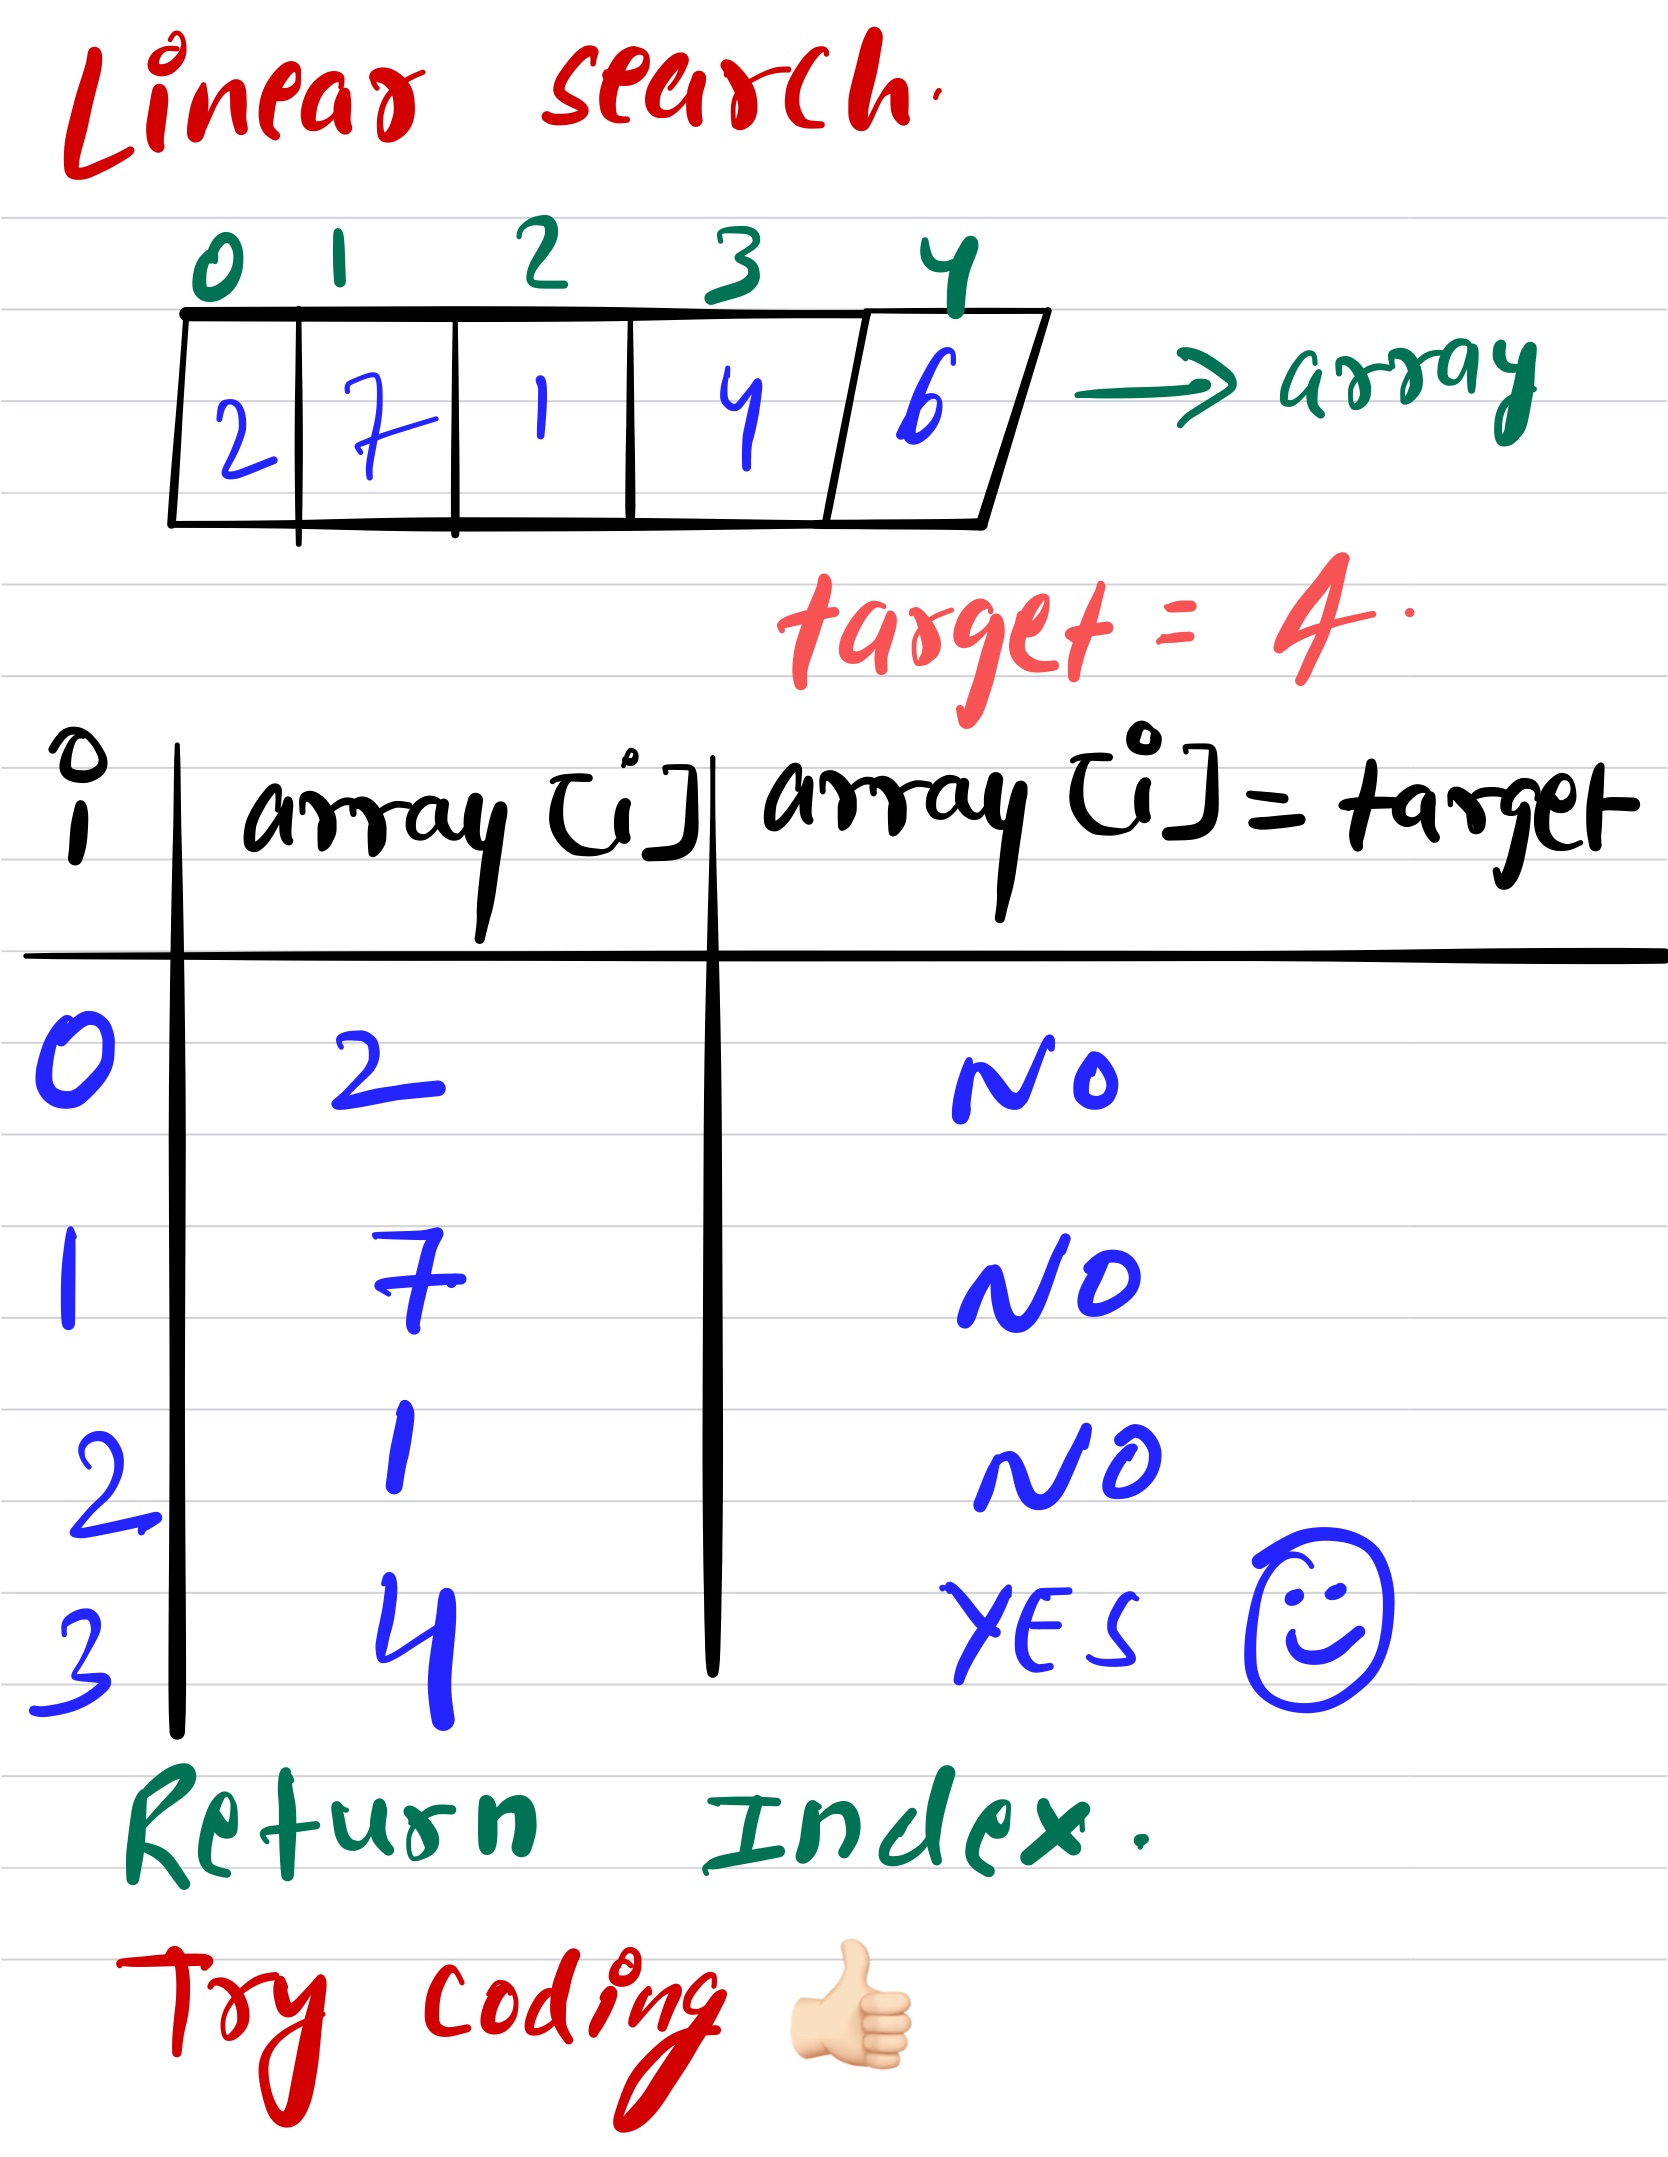 Linear search.
0 1 2 3 4
2 7 1 4 6 → array
target = 4.
i array [i] array [i] = target
0 2 NO
1 7 NO
2 1 NO
3 4 YES
Return Index.
Try coding 👍🏻